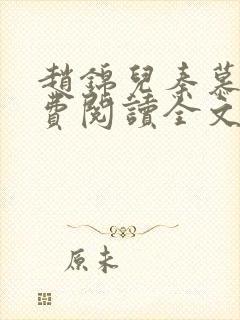 趙錦兒秦慕
費閱讀全文
原來